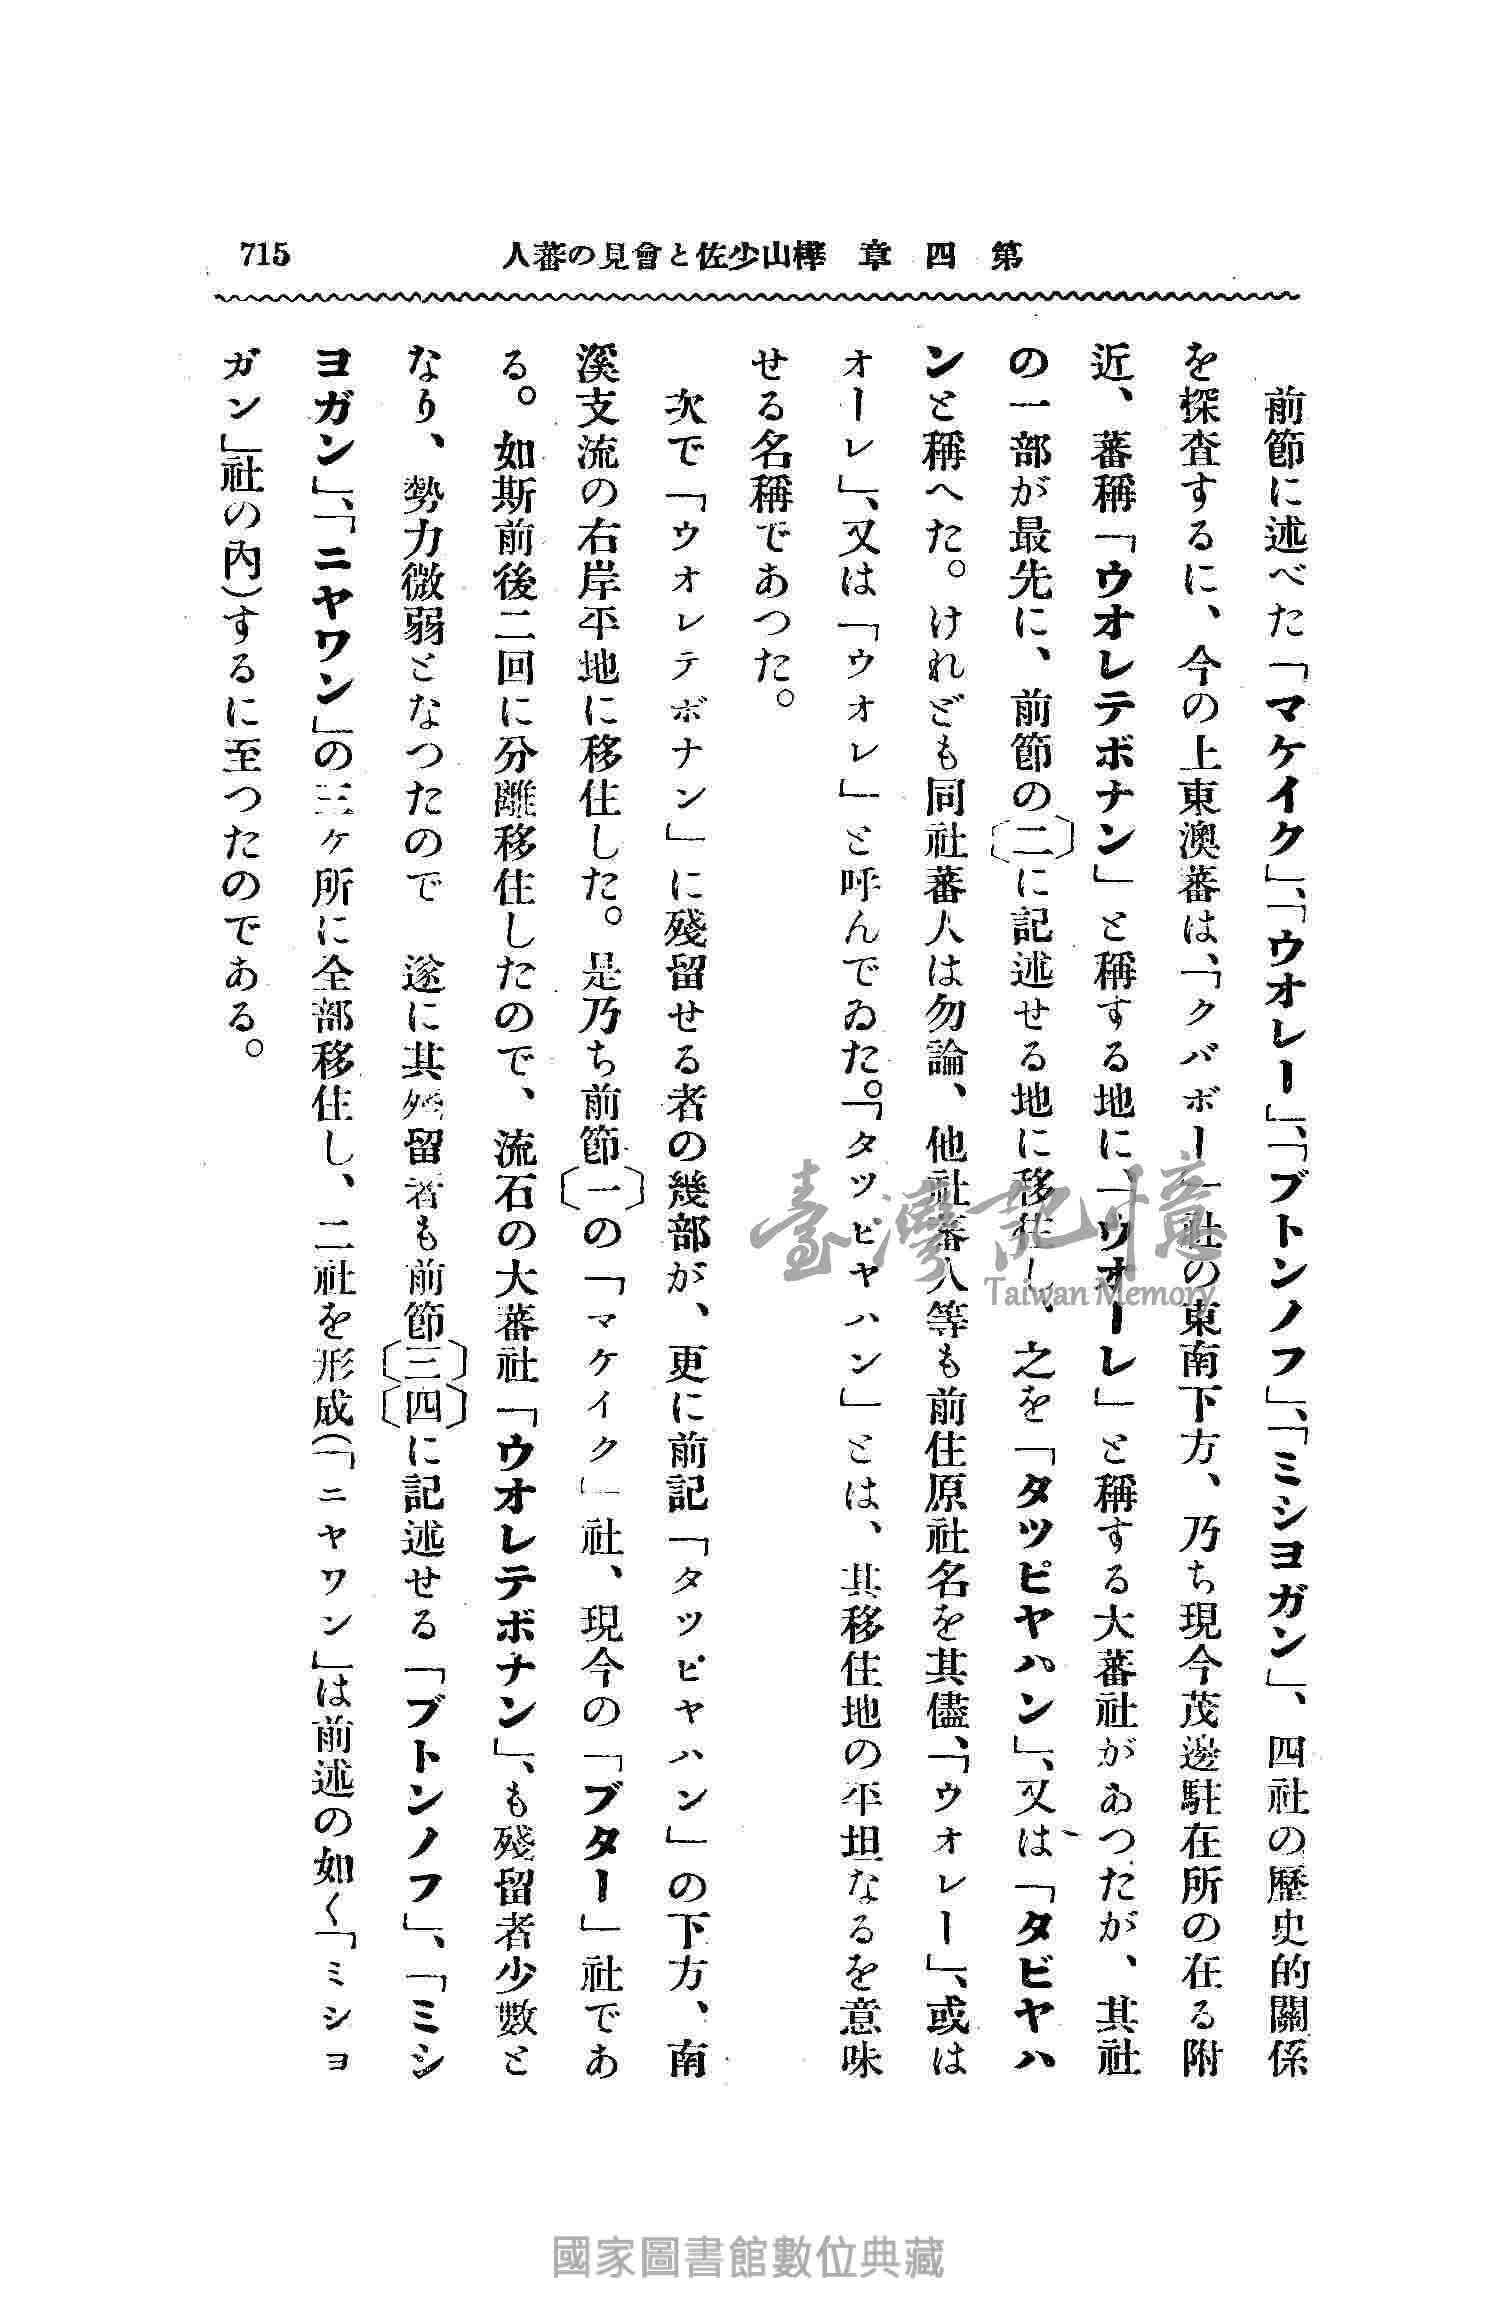 第四章 樺山少佐と會見の蕃人
715
前節に述べた「マケイク」、「ウオレー」、「ブトンノフ」、「ミシヨガン」、四社の歷史的關係
を探査するに、今の上東澳蕃は、「クバボー」社の東南下方、乃ち現今茂邊駐在所の在る附
近、蕃稱「ウオレテボナン」と稱する地に、「ウオーレ」と稱する大蕃社があつたが、其社
の一部が最先に、前節の〔二〕に記述せる地に移住し、之を「タツピヤハン」、又は「タビヤハ
ンと稱へた。けれども同社蕃人は勿論、他社蕃人等も前住原社名を其儘、「ウオレー」、或は
オーレ」、又は「ウオレ」と呼んでゐた。「タツピヤハン」とは、其移住地の平坦なるを意味
せる名稱であつた。
次で「ウオレテボナン」に殘留せる者の幾部が、更に前記「タツピヤハン」の下方、南
溪支流の右岸平地に移住した。是乃ち前節〔一〕の「マケイク」社、現今の「ブター」社であ
る。如斯前後二回に分離移住したので、流石の大蕃社「ウオレテボナン」、も殘留者少數と
なり、勢力微弱となつたので 遂に其殘留者も前節〔三〕〔四〕に記述せる「ブトンノフ」、「ミシ
ヨガン」、「ニヤワン」の三ヶ所に全部移住し、二社を形成(「ニヤワン」は前述の如く「ミシヨ
ガン」社の內)するに至つたのである。
臺灣記憶
Taiwan Memory
國家圖書館數位典藏